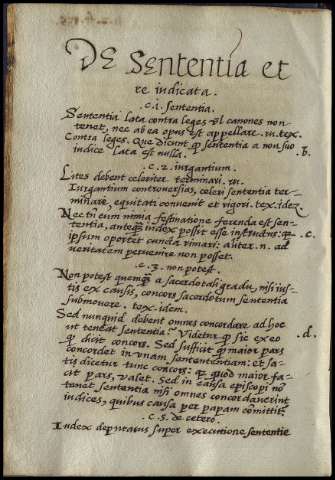 DE Sententia et
re iudicata.
.c.1. sententia.
Sententia lata contra leges vl canones non
tenet, nec ab ea opus est appellare. in. tex.
Contra leges. Que dicunt q sententia a non suo
iudice lata est nulla. b.
.c.2. iurgantium.
Lites debent celeriter terminari. in.
Iurgantium controversias, celeri sententia ter-
minare, equitati convenit et rigori. tex. idez
Nec tn cum nimia festinatione ferenda est sen-
tentia, anteq index possit esse instructus: q .c.
ipsum oportet cuncta rimari: aliter. n. ad
veritatem pervenire non posset.
.c.3. non potest.
Non potest quemq a sacerdotali gradu, nisi ius-
tis ex causis, concors sacerdotum sententia
submovere. tex. idem.
Sed nunquid debent omnes concordare ad hoc
ut teneat sententia: Videtur q sic ex eo
q dicit concors. Sed sufficit q maior pars .d.
concordet in unam sententiam: et sa-
tis dicetur tunc concors: q quod maior fa-
cit pars, valet. Sed in causa episcopi no
tenet sententia nisi omnes concordaverint
iudices, quibus causa per papam comittit.
.c.5. de cetero.
Iudex deputatus super executione sententie